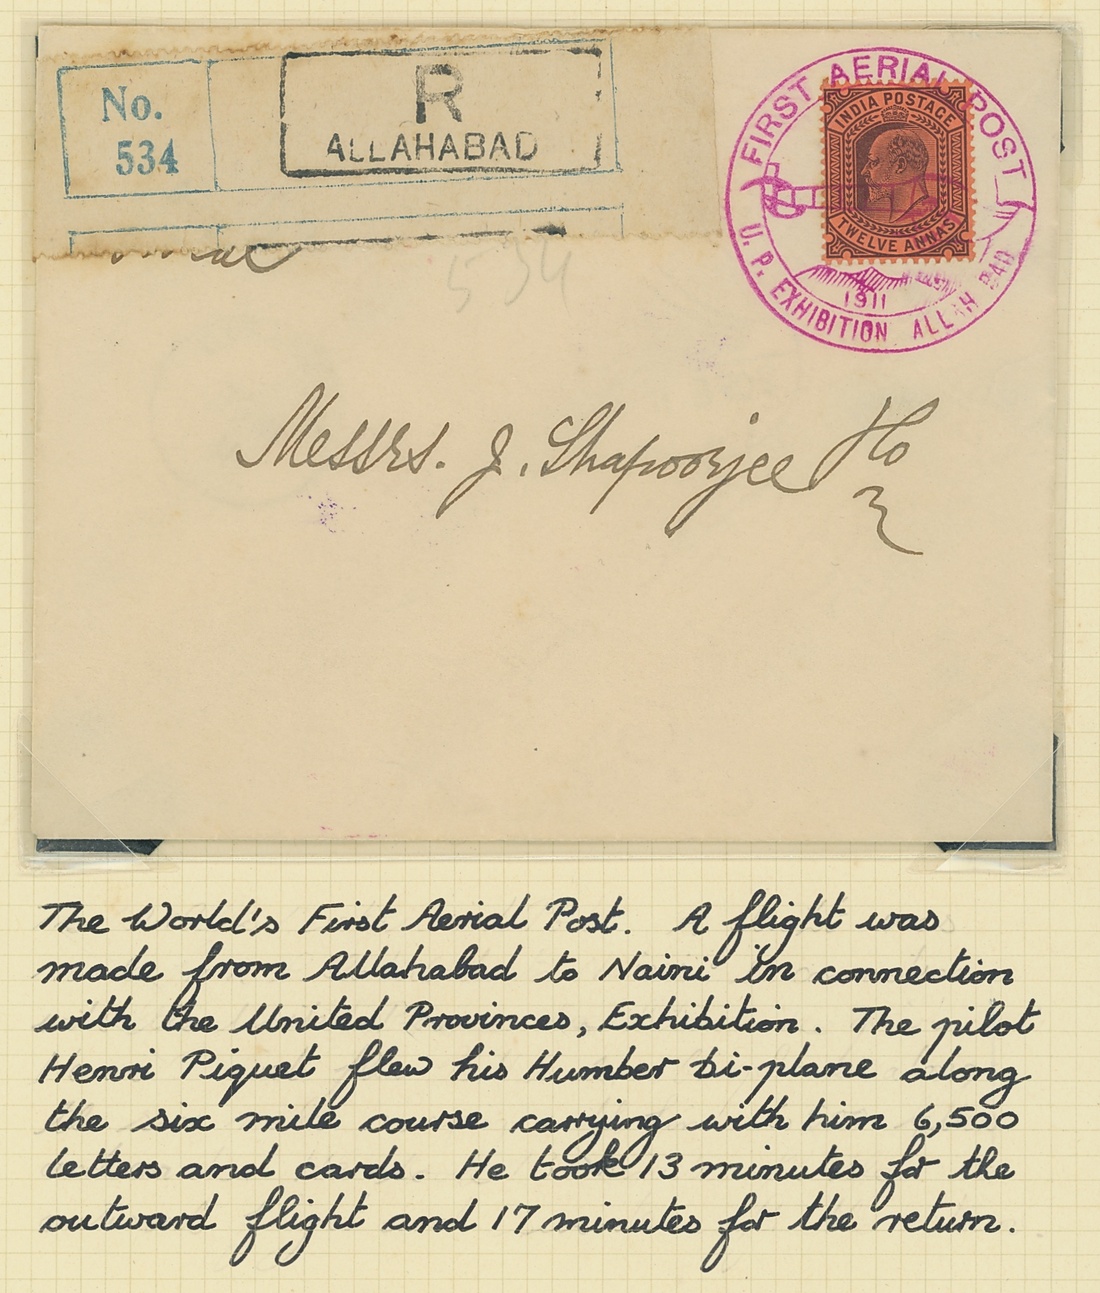 No.
534
R
ALLAHABAD
FIRST AERIAL POST
U. P. EXHIBITION ALLAHABAD
1911
INDIA POSTAGE
TWELVE ANNAS
534
Messrs. J. Shapoorjee
The World's First Aerial Post. A flight was
made from Allahabad to Naini in connection
with the United Provinces, Exhibition. The pilot
Henri Piquet flew his Humber bi-plane along
the six mile course carrying with him 6,500
letters and cards. He took 13 minutes for the
outward flight and 17 minutes for the return.